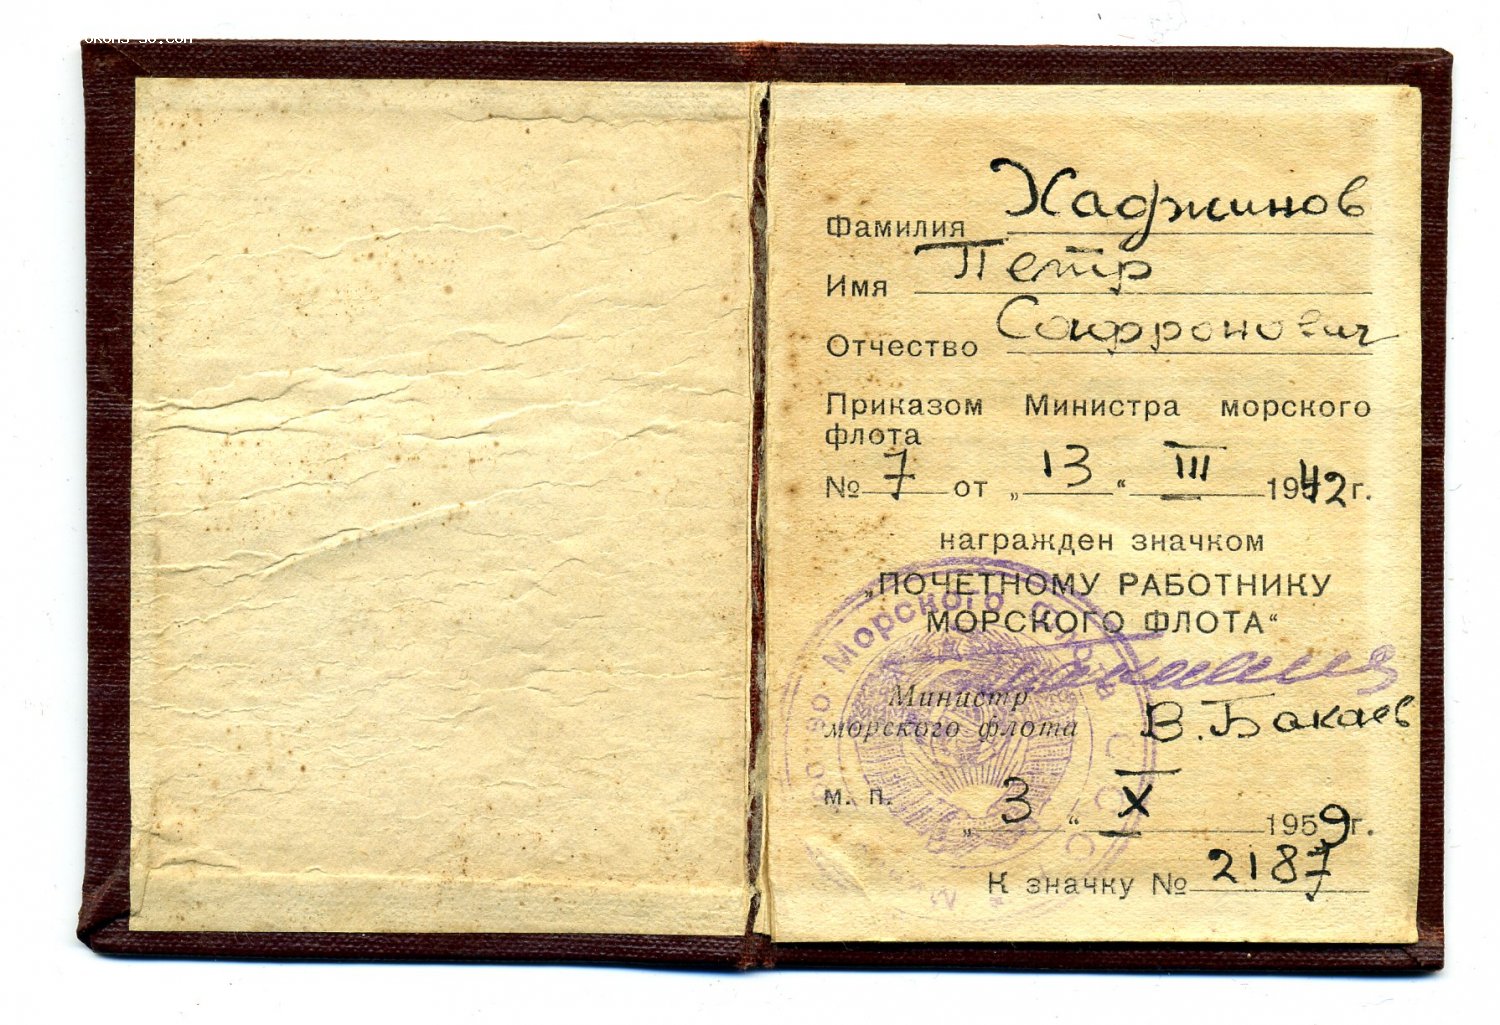 Фамилия Хаджинов
Имя Петр
Отчество Софронович
Приказом Министра морского
флота
№ 7 от „ 13 “ III 1942 г.
награжден значком
„ПОЧЕТНОМУ РАБОТНИКУ
МОРСКОГО ФЛОТА“
Министр
морского флота В. Бакаев
м. п.
„ 3 “ X 1959 г.
К значку № 2187
Морского Флота СССР